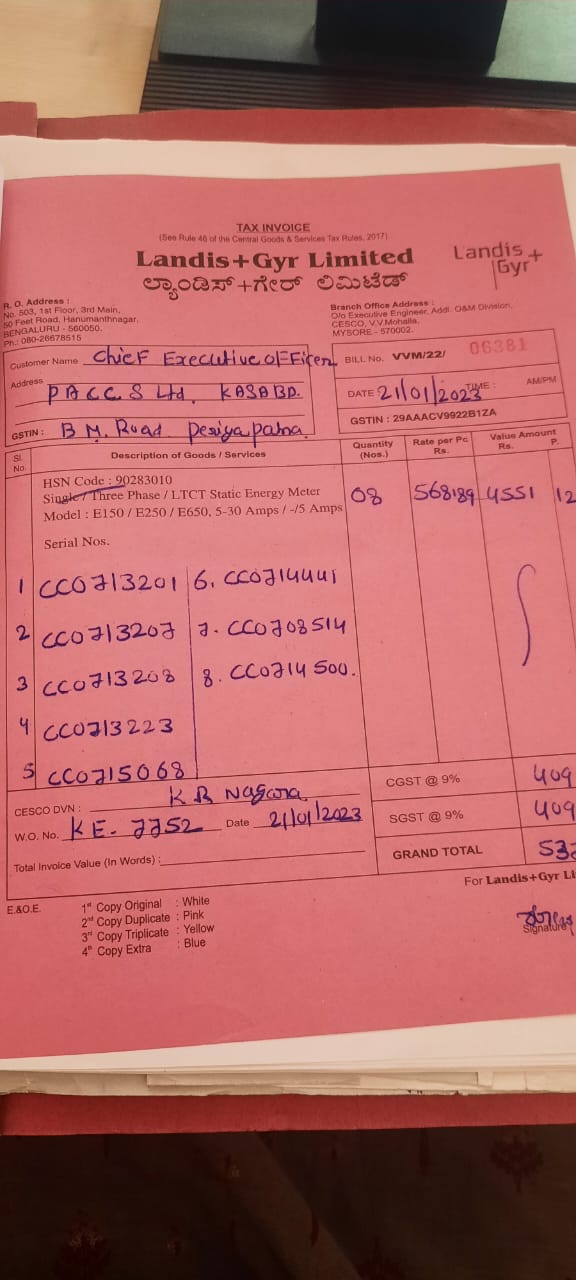 TAX INVOICE
(See Rule 46 of the Central Goods & Services Tax Rules, 2017)
Landis+Gyr Limited
ಲ್ಯಾಂಡಿಸ್+ಗೇರ್ ಲಿಮಿಟೆಡ್
Landis+
Gyr
R. O. Address :
No. 503, 1st Floor, 3rd Main,
50 Feet Road, Hanumanthnagar,
BENGALURU - 560050.
Ph.: 080-26678515
Branch Office Address :
O/o Executive Engineer, Addl. O&M Division,
CESCO, V.V.Mohalla,
MYSORE - 570002.
Customer Name Chief Executive officer
Address PACC.S Ltd. KASABA.
GSTIN : B M. Road Periyapatna
BILL No. VVM/22/ 06381
DATE 21/01/2023 TIME : AM/PM
GSTIN : 29AAACV9922B1ZA
Sl. No. Description of Goods / Services Quantity (Nos.) Rate per Pc Rs. Value Amount Rs. P.
HSN Code : 90283010
Single / Three Phase / LTCT Static Energy Meter 08 568.89 4551 12
Model : E150 / E250 / E650, 5-30 Amps / -/5 Amps
Serial Nos.
1 CC0713201 6. CC0714441
2 CC0713207 7. CC0708514
3 CC0713208 8. CC0714500.
4 CC0713223
5 CC0715068
CESCO DVN : K R Nagara
W.O. No. KE- 7752 Date 21/01/2023
Total Invoice Value (In Words) :
CGST @ 9% 409
SGST @ 9% 409
GRAND TOTAL 53
E.&O.E.
1st Copy Original : White
2nd Copy Duplicate : Pink
3rd Copy Triplicate : Yellow
4th Copy Extra : Blue
For Landis+Gyr Li
Signature